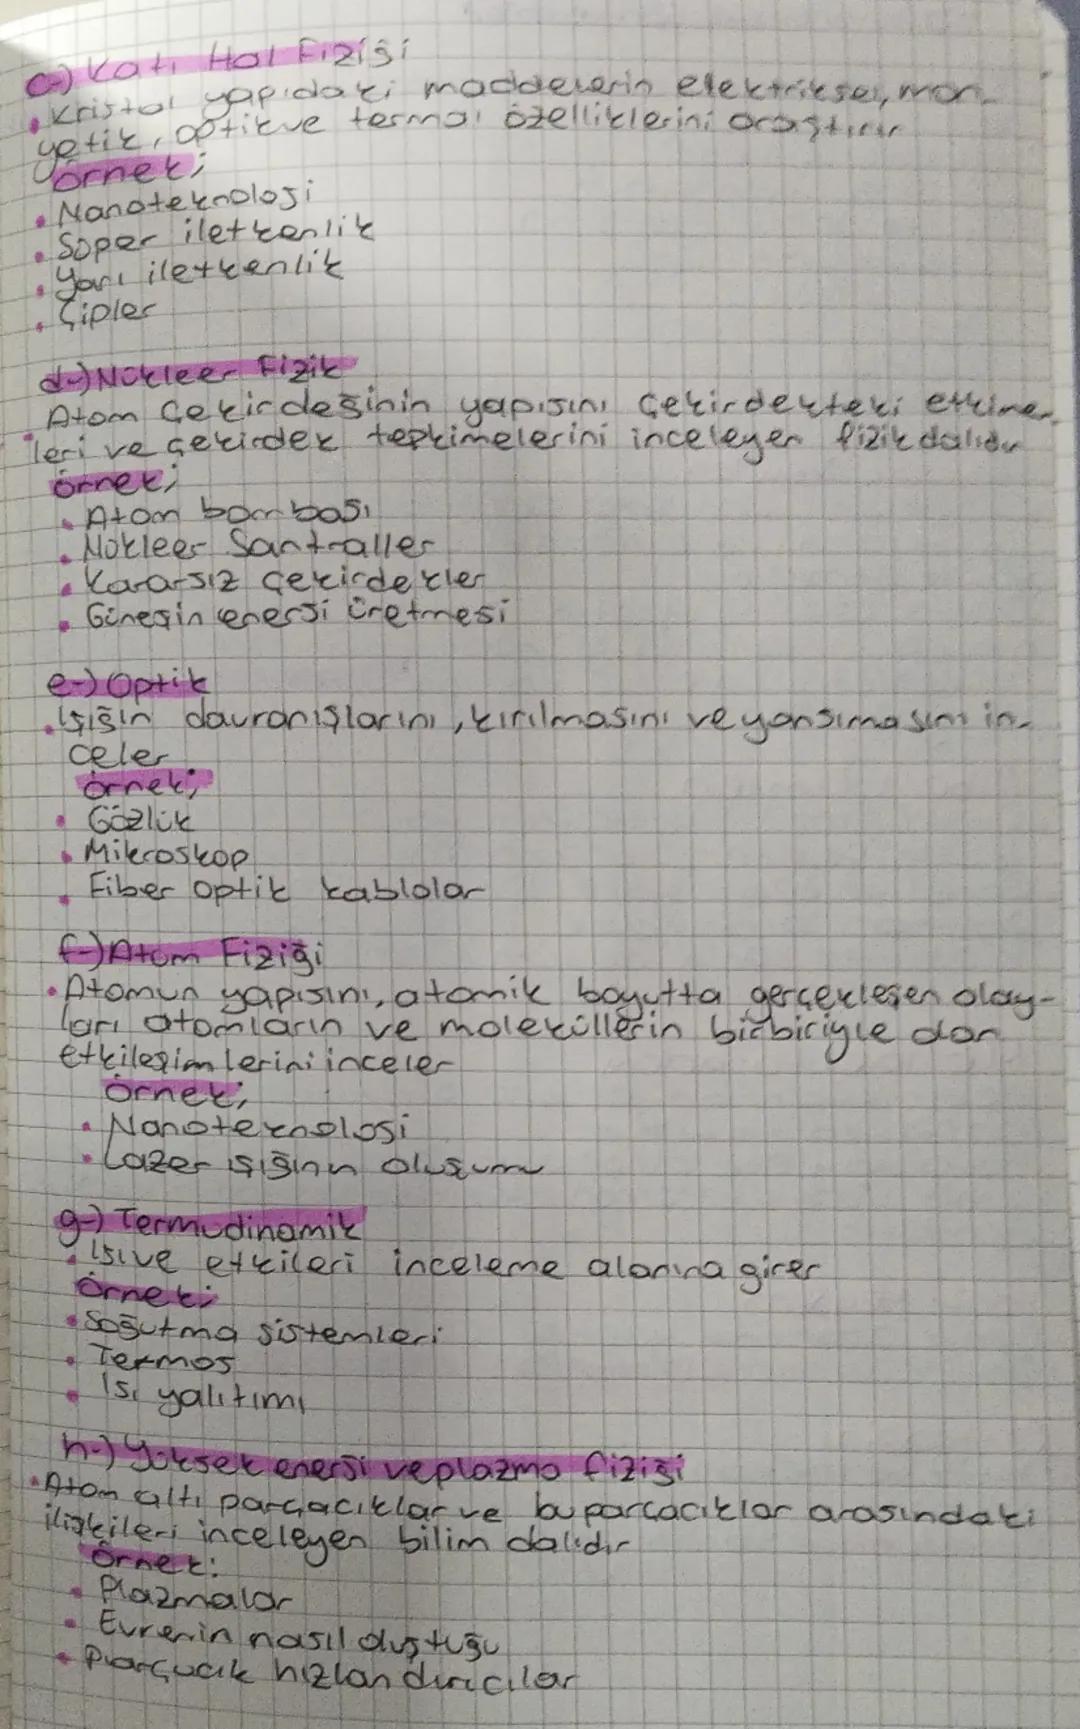 c-) Katı Hal Fiziği
• Kristal yapıdaki maddelerin elektriksel, man-
yetik, optik ve termal özelliklerini araştırır
örnek;
• Nanoteknoloji
• Süper iletkenlik
• Yarı iletkenlik
• Çipler
d-) Nükleer Fizik
• Atom Çekirdeğinin yapısını Çekirdekteki etkime-
leri ve çekirdek tepkimelerini inceleyen fizik dalıdır
örnek;
• Atom bombası
• Nükleer Santraller
• Kararsız çekirdekler
• Güneşin enerji üretmesi
e-) Optik
• Işığın davranışlarını, kırılmasını ve yansımasını in-
celer
örnek;
• Gözlük
• Mikroskop
• Fiber optik kablolar
f-) Atom Fiziği
• Atomun yapısını, atomik boyutta gerçekleşen olay-
ları atomların ve moleküllerin birbiriyle olan
etkileşimlerini inceler
Örnek;
• Nanoteknoloji
• Lazer ışığının oluşumu
g-) Termodinamik
• Isı ve etkileri inceleme alanına girer
Örnek;
• Soğutma sistemleri
• Termos
• Isı yalıtımı
h-) Yüksek enerji ve plazma fiziği
• Atom altı parçacıklar ve bu parçacıklar arasındaki
ilişkileri inceleyen bilim dalıdır
Örnek:
• Plazmalar
• Evrenin nasıl oluştuğu
• Parçacık hızlandırıcılar